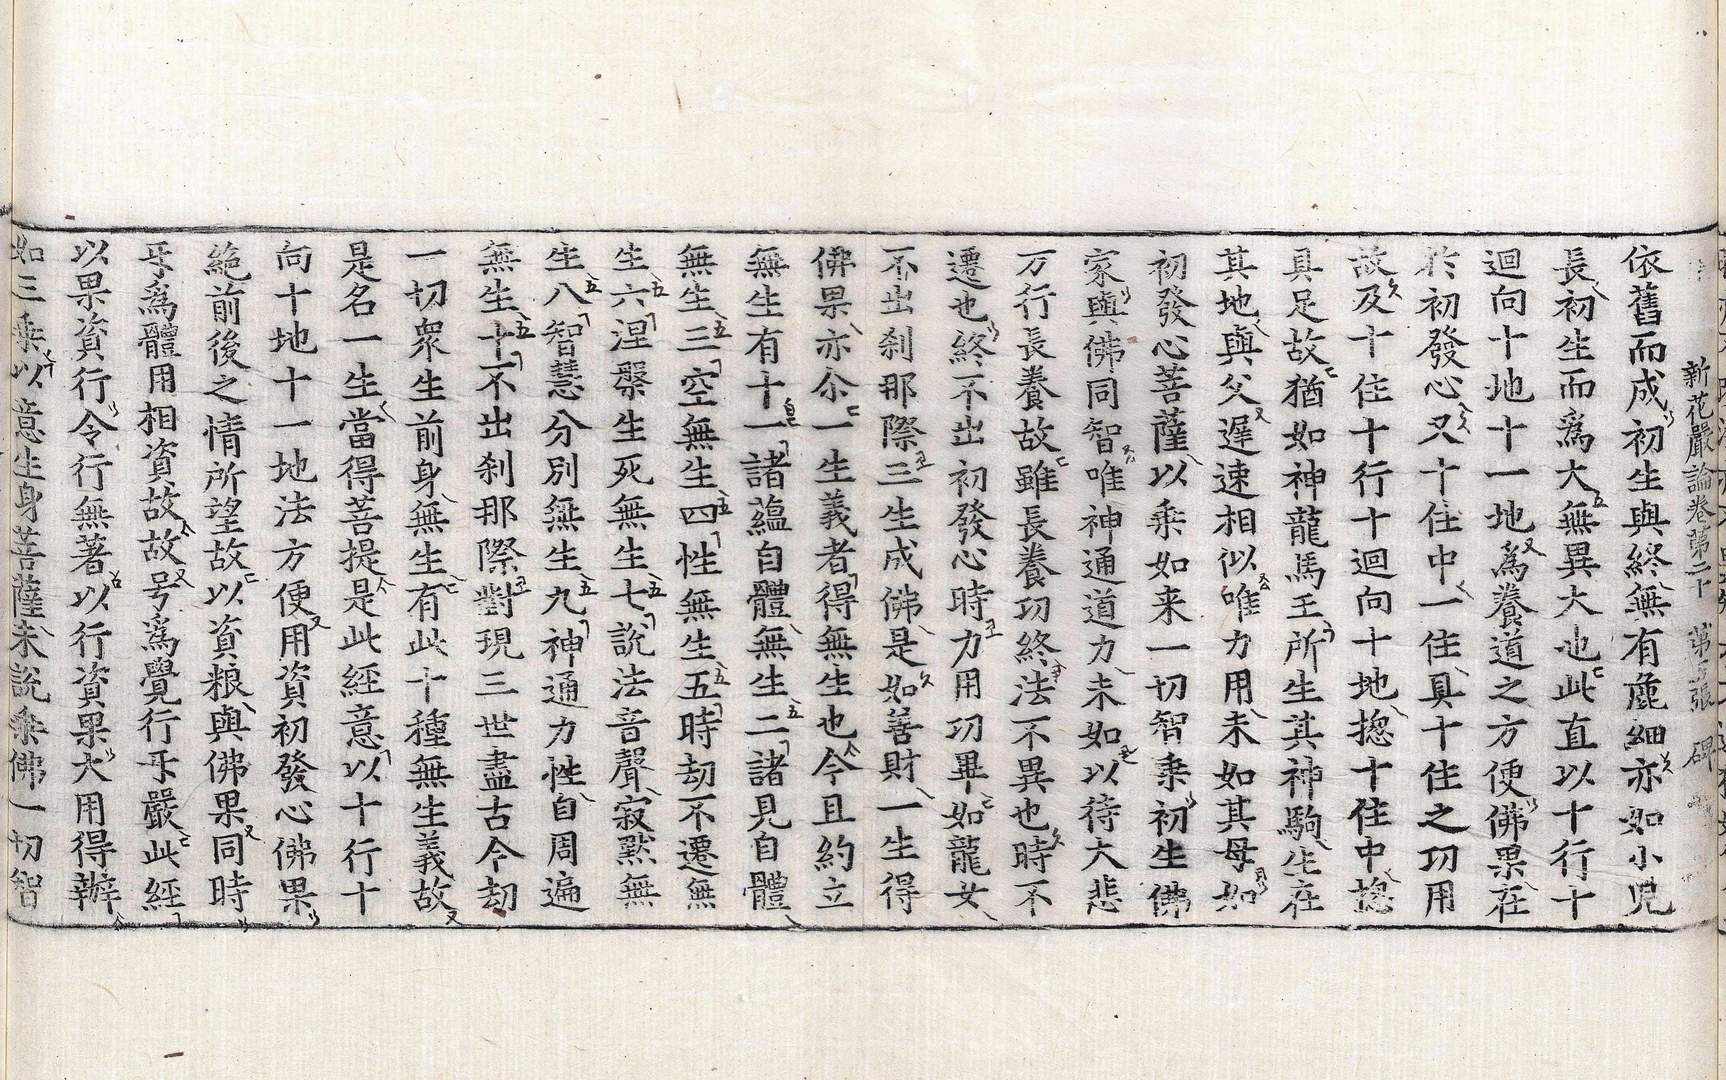 新花嚴論卷第二十 第 張 碑
依舊而成初生與終無有麁細亦如小兒
長初生而爲大無異大也此直以十行十
迴向十地十一地爲養道之方便佛果在
於初發心又十住中一住具十住之功用
故及十住十行十迴向十地揔十住中揔
具足故猶如神龍馬王所生其神駒生在
其地與父遲速相似唯力用未如其母如
初發心菩薩以乘如来一切智乘初生佛
家與佛同智唯神通道力未如以待大悲
万行長養故雖長養功終法不異也時不
遷也終不出初發心時力用功畢如龍女
不出刹那際三生成佛是如善財一生得
佛果亦尒一生義者得無生也今且約立
無生有十一諸蘊自體無生二諸見自體
無生三空無生四性無生五時劫不遷無
生六涅槃生死無生七說法音聲寂黙無
生八智慧分別無生九神通力性自周遍
無生十不出刹那際對現三世盡古今劫
一切衆生前身無生有此十種無生義故
是名一生當得菩提是此經意以十行十
向十地十一地法方便用資初發心佛果
絶前後之情所望故以資粮與佛果同時
乎爲體用相資故故号爲覺行乎嚴此經
以果資行令行無著以行資果大用得辦
如三乘以意生身菩薩未說乘佛一切智